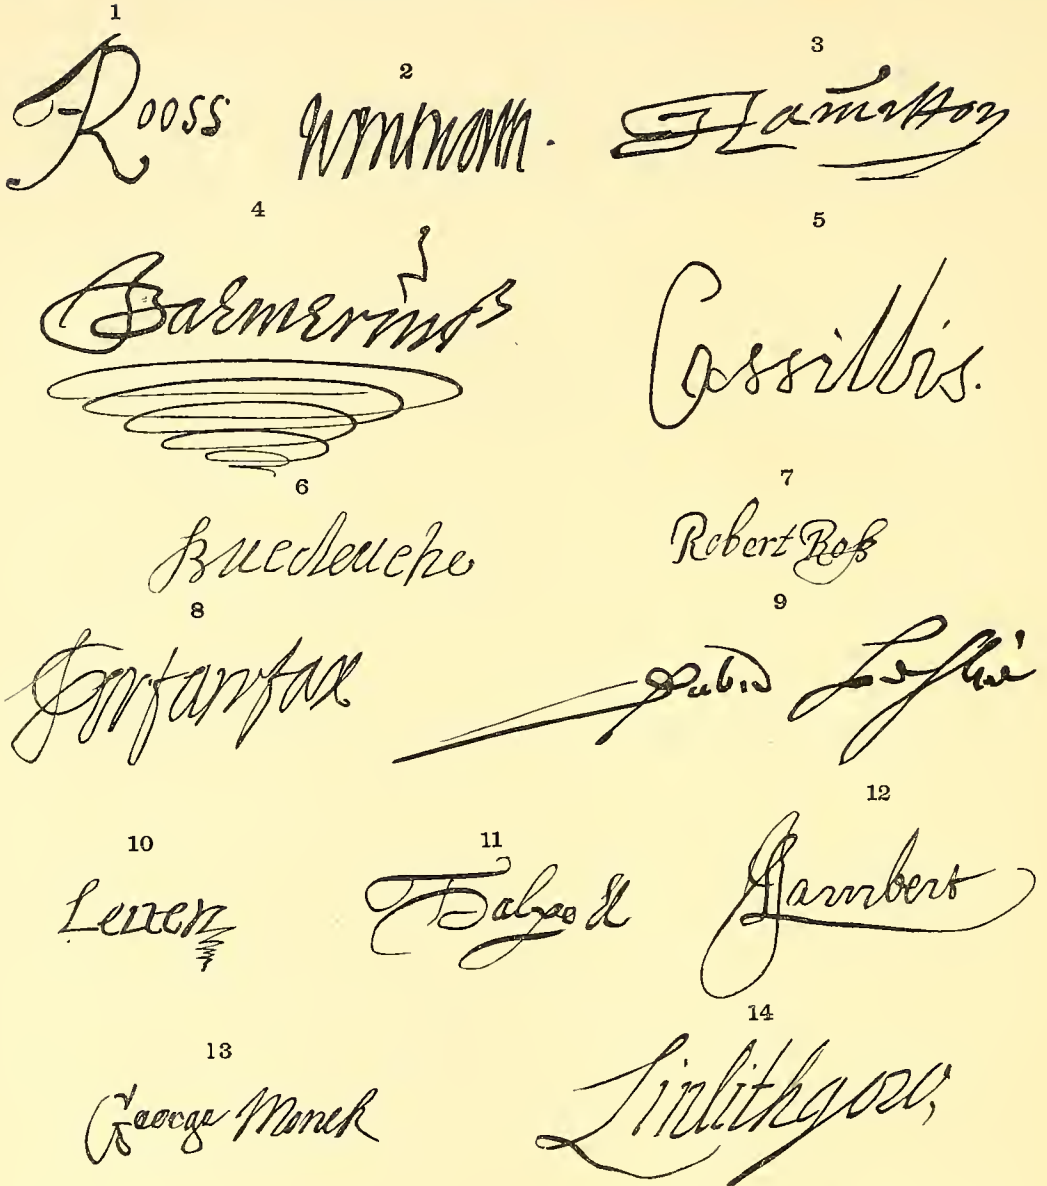 1
Rooss
2
3
Hamilton
4
Balmerinoß
5
Cassillis.
6
Buccleuche
7
Robert Roß
8
9
David Leslie
10
Leuen
11
12
JLambert
13
George Monck
14
Linlithgow,